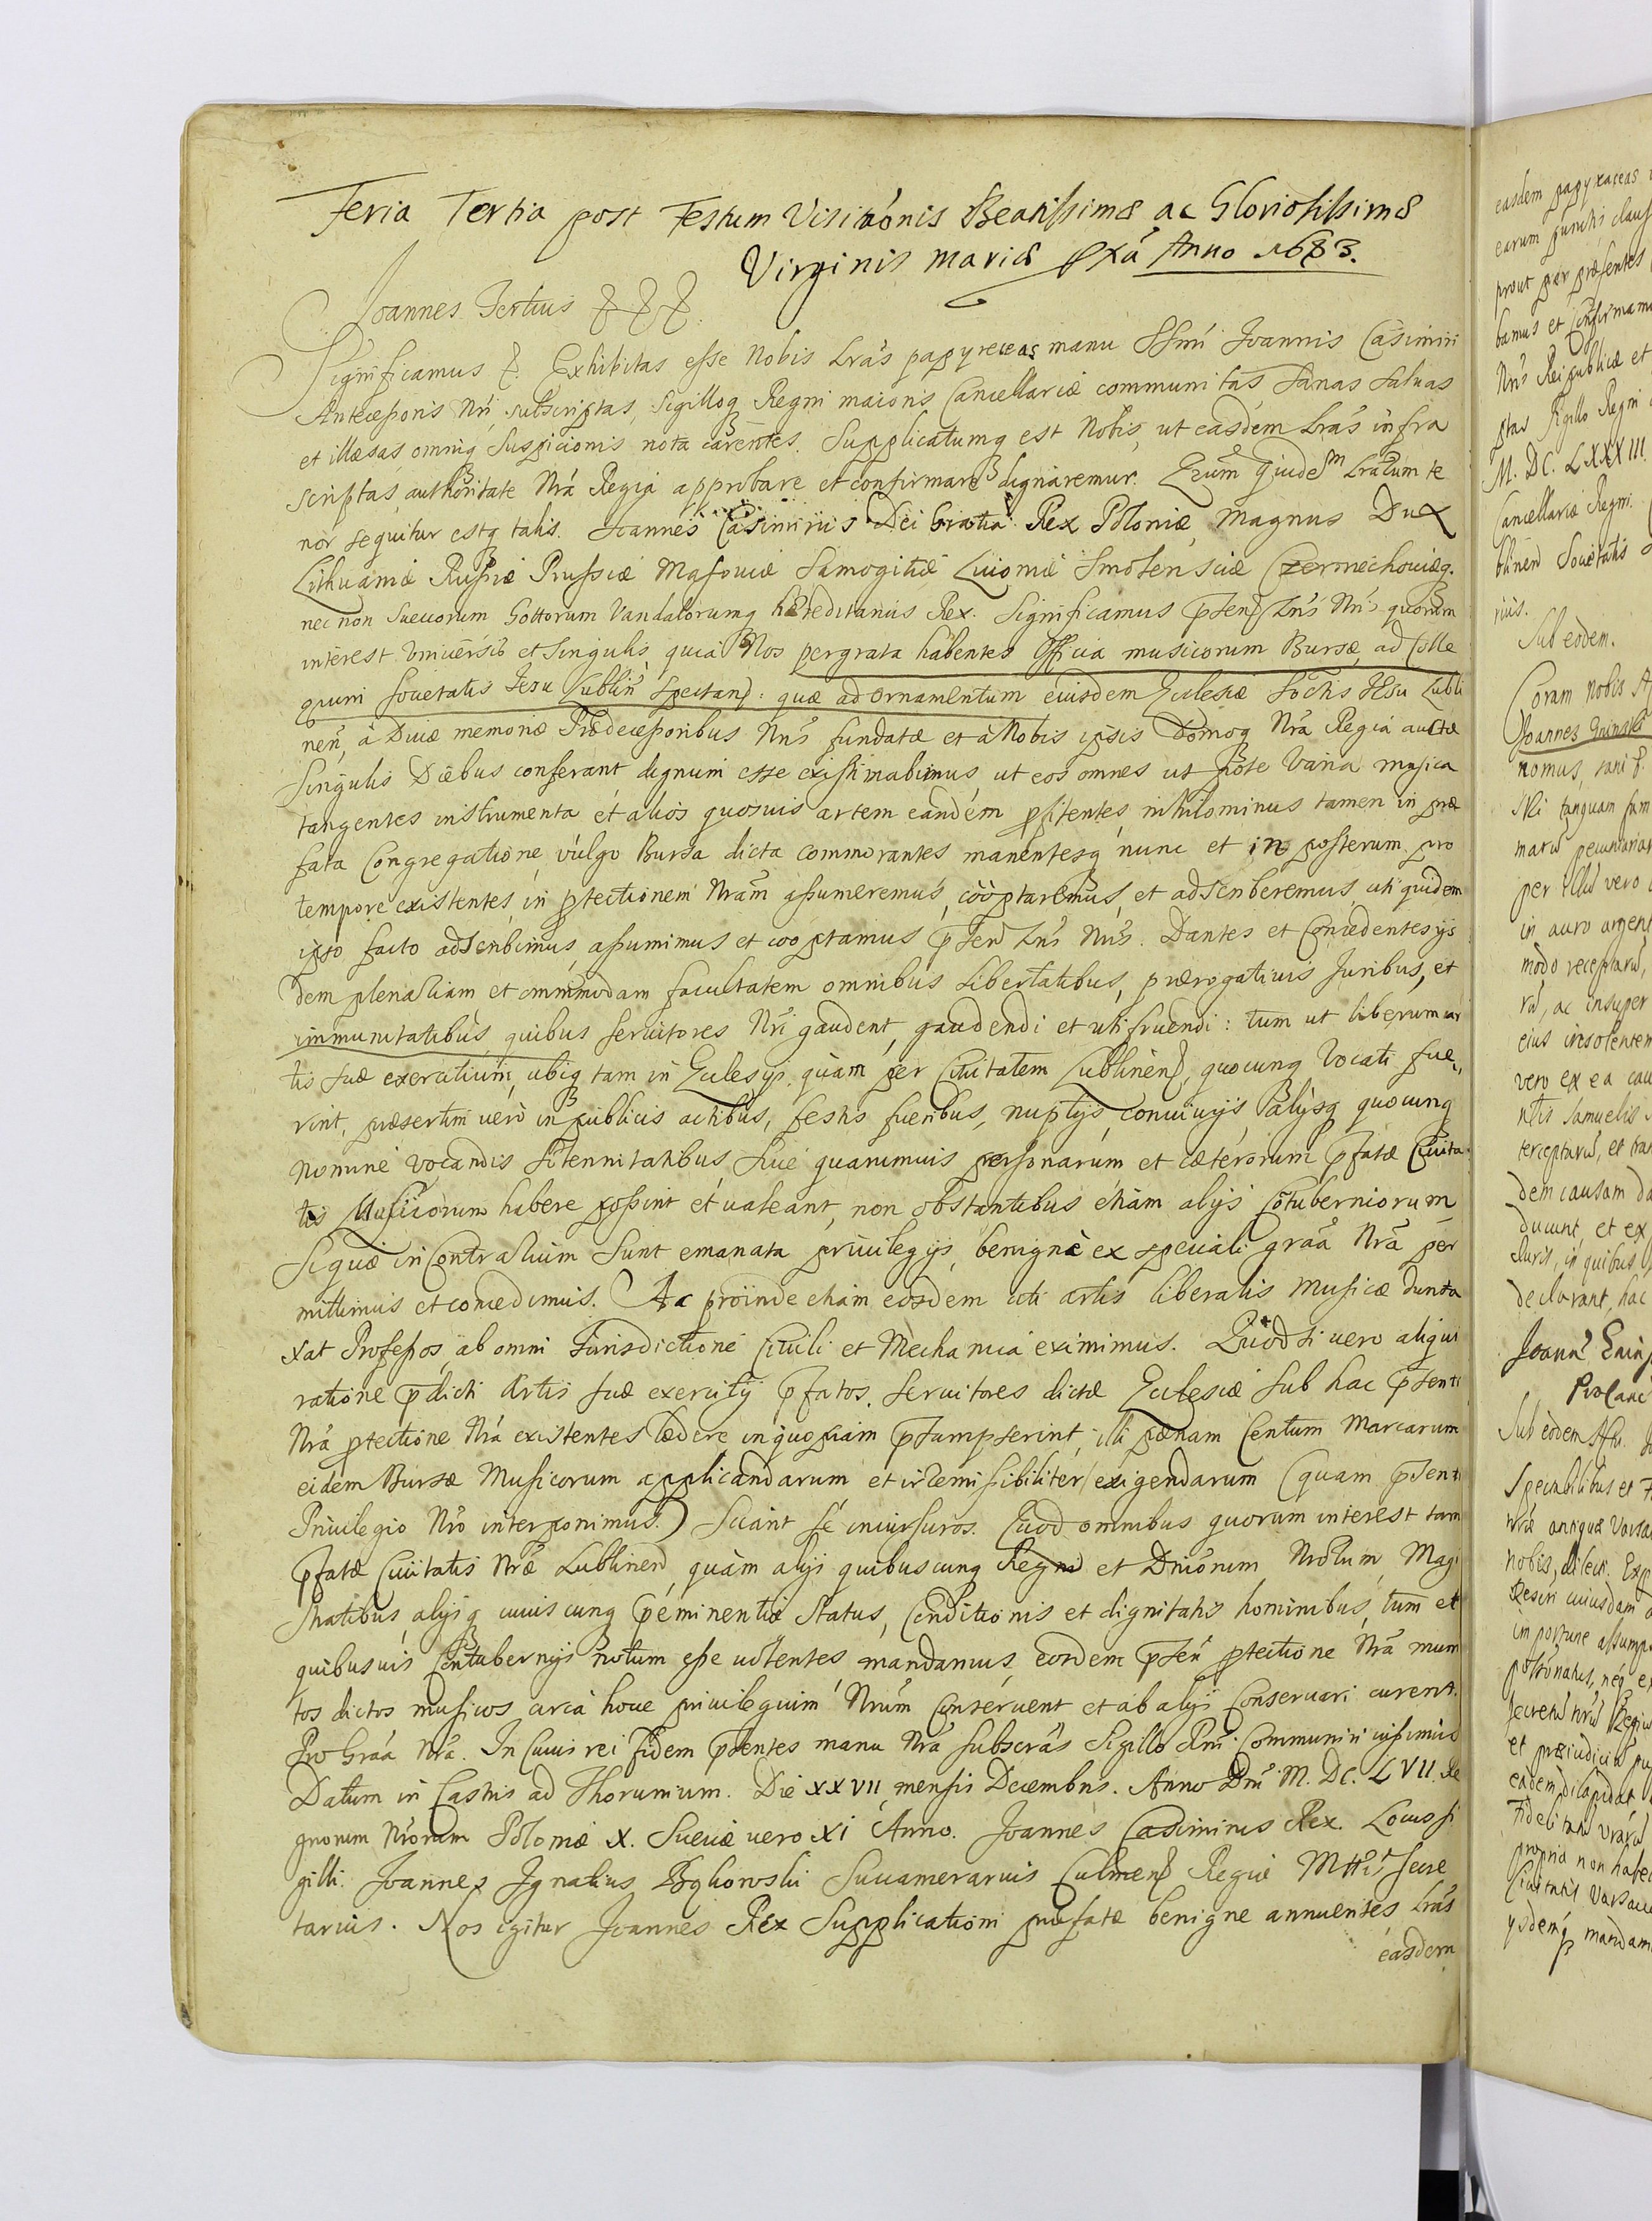 Feria Tertia post Festum Visitaónis Beatissimæ ac Gloriosissimæ
Virginis Mariæ pxá Anno 1683.
Joannes Tertius
Significamus Exhibitas esse Nobis Lrás papyreceas manu Ssmi Joannis Casimiri
Antecessoris Nri, subscriptas, sigilloq Regni maioris Cancellariæ communitas, Sanas Saluas
et illæsas, omniq Suspicionis nota carentes. Supplicatumq est Nobis, ut easdem Lrás infra
scriptas, authoritate Nrá Regia approbare et confirmare dignaremur. quidem Lrarum te
nor sequitur estq talis. Joannes Casimirus Dei Gratia Rex Poloniæ, Magnus Dux
Lithuaniæ Russiæ Prussiæ Masouiæ Samogitiæ Liuoniæ Smolensciæ Czerniechouiæq.
nec non Sueuorum Gottorum Vandalorumq hæreditarius Rex. Significamus pten Lris Nris quorum
interest Vniuersis et Singulis, quia Nos pergrata habentes Officia musicorum Bursæ, ad Colle
gium Societatis Jesu Lublin Spectan: quæ ad ornamentum eiusdem Eclesiæ Soctis Jesu Lubli
nen, à Diuæ memoriæ Prædecessoribus Nris fundatæ et a Nobis ipsis Domoq Nrá Regia auctæ
Singulis Diebus conferant dignum esse existimabimus, ut eos omnes ut pote Varia musica
tangentes instrumenta et alios quosuis artem eandem pfitentes, nihilominus tamen in præ
fata Congregatione vulgo Bursa dicta commorantes manentesq nunc et in posterum pro
tempore existentes, in ptectionem Nram assumeremus, cooptaremus, et adscriberemus, uti quidem
ipso facto adscribimus, assumimus et cooptamus pten Lris Nris. Dantes et Concedentes ijs
dem plenariam et omnimodam facultatem omnibus Libertatibus, prærogatiuis Juribus, et
immunitatibus, quibus Seruitores Nri gaudent, gaudendi et uti fruendi: tum ut liberum ar
tis suæ exercitium, ubiq tam in Eclesijs, quàm per Ciuitatem Lublinen, quocunq Vocati fue,
rint, præsertim uero in publicis actibus, festis fueribus, nuptijs, conuiuijs, alijsq quocunq
nomine vocandis Solennitatibus Siue quarumuis personarum et cæterorum pfatæ Ciuita
tis Musicorum habere possint et ualeant, non obstantibus etiam alijs Cotuberniorum
Si quæ in Contrarium Sunt emanata priuilegijs, benigne ex speciali graâ Nrâ per
mittimus et concedimus. Ac proinde etiam eosdem uti artis liberalis Musicæ dunta
xat Professos, ab omni Jurisdictione Ciuili et Mechanica eximimus. Quod si uero aliqui
ratione pdicti Artis suæ exercitij pfatos, Seruitores dictæ Eclesiæ Sub hac ptenti
Nrâ ptectione Nrâ existentes lædere in quopiam ptumpserint, illi pænam Centum Marcarum
eidem Bursæ Musicorum applicandarum et irremissibiliter exigendarum (quam ptenti
Priuilegio Nro interponimus.) Sciant Se incursuros. Quod omnibus quorum interest tam
pfatæ Ciuitatis Nræ Lublinen, quàm alijs quibuscunq Regni et Dniorum Nrorum, Magi
stratibus, alijsq cuiuscunq peminentiæ Status, Conditionis et dignitatis hominibus, tum et
quibusuis Contubernijs notum esse uolentes, mandamus, eosdem pten ptectione Nrâ muni
tos dictos musicos circa hocce priuilegium Nrum conseruent et ab alijs Conseruari curent.
Pro Graâ Nrâ. In Cuius rei fidem ptentes manu Nrâ subscrás Sigillo Rni. Communiri iussimus
Datum in Castris ad Thorunium. Die XXVII, mensis Decembris. Anno Dni M. DC. LVII. Re
gnorum Nrorum Poloniæ X. Sueciæ uero XI Anno. Joannes Casimirus Rex. Locus si
gilli. Joannes Ignatius Bąkowski Succamerarius Culmen Regiæ Mttis Secre
tarius. Nos igitur Joannes Rex Supplicationi præfatæ benigne annuentes, Lrás
easdem
easdem papyraceas
earum punctis claus
prout per præsentes
bamus et Confirmamu
Nris Reipublicæ et
ptas Sigillo Regni
M. DC. LXXXIII.
Cancellariæ Regni.
blinen Societatis
rius.
Sub eodem.
Coram Nobis
Joannes
nomus, sani
tanquam
maru pecuniariar
per illu vero
in auro argent
modo receptaru,
ru, ac insuper
eius insolentem
vero ex ea cau
ntis Samuelis
terceptaru, et
dem causam
ducunt, et ex
in quibus
declarant, hac
Joann
Sub eodem
Spectabilibus et
antiquæ Varsa
Nobis, dilecti. Exp
cuiusdam
importune assump
et præiudiciu
eadem dilapidat
propria non habe
Ciuitatis Varsaui
ysdemq mandam